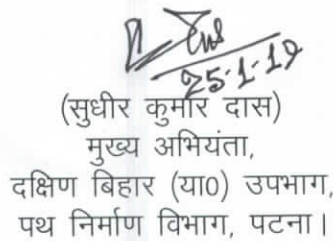 25-1-19
(सुधीर कुमार दास)
मुख्य अभियंता,
दक्षिण बिहार (या0) उपभाग,
पथ निर्माण विभाग, पटना।